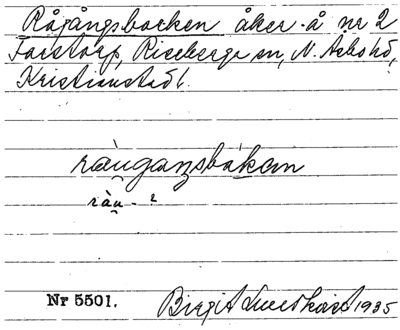 Rågångsbacken åker å nr 2
Färstorp, Riseberga sn, N. Åsbo hd,
Kristianstad l.
ràu̯gaŋsbákan
ràu̯-
Nr 5501.
Birgit 1935